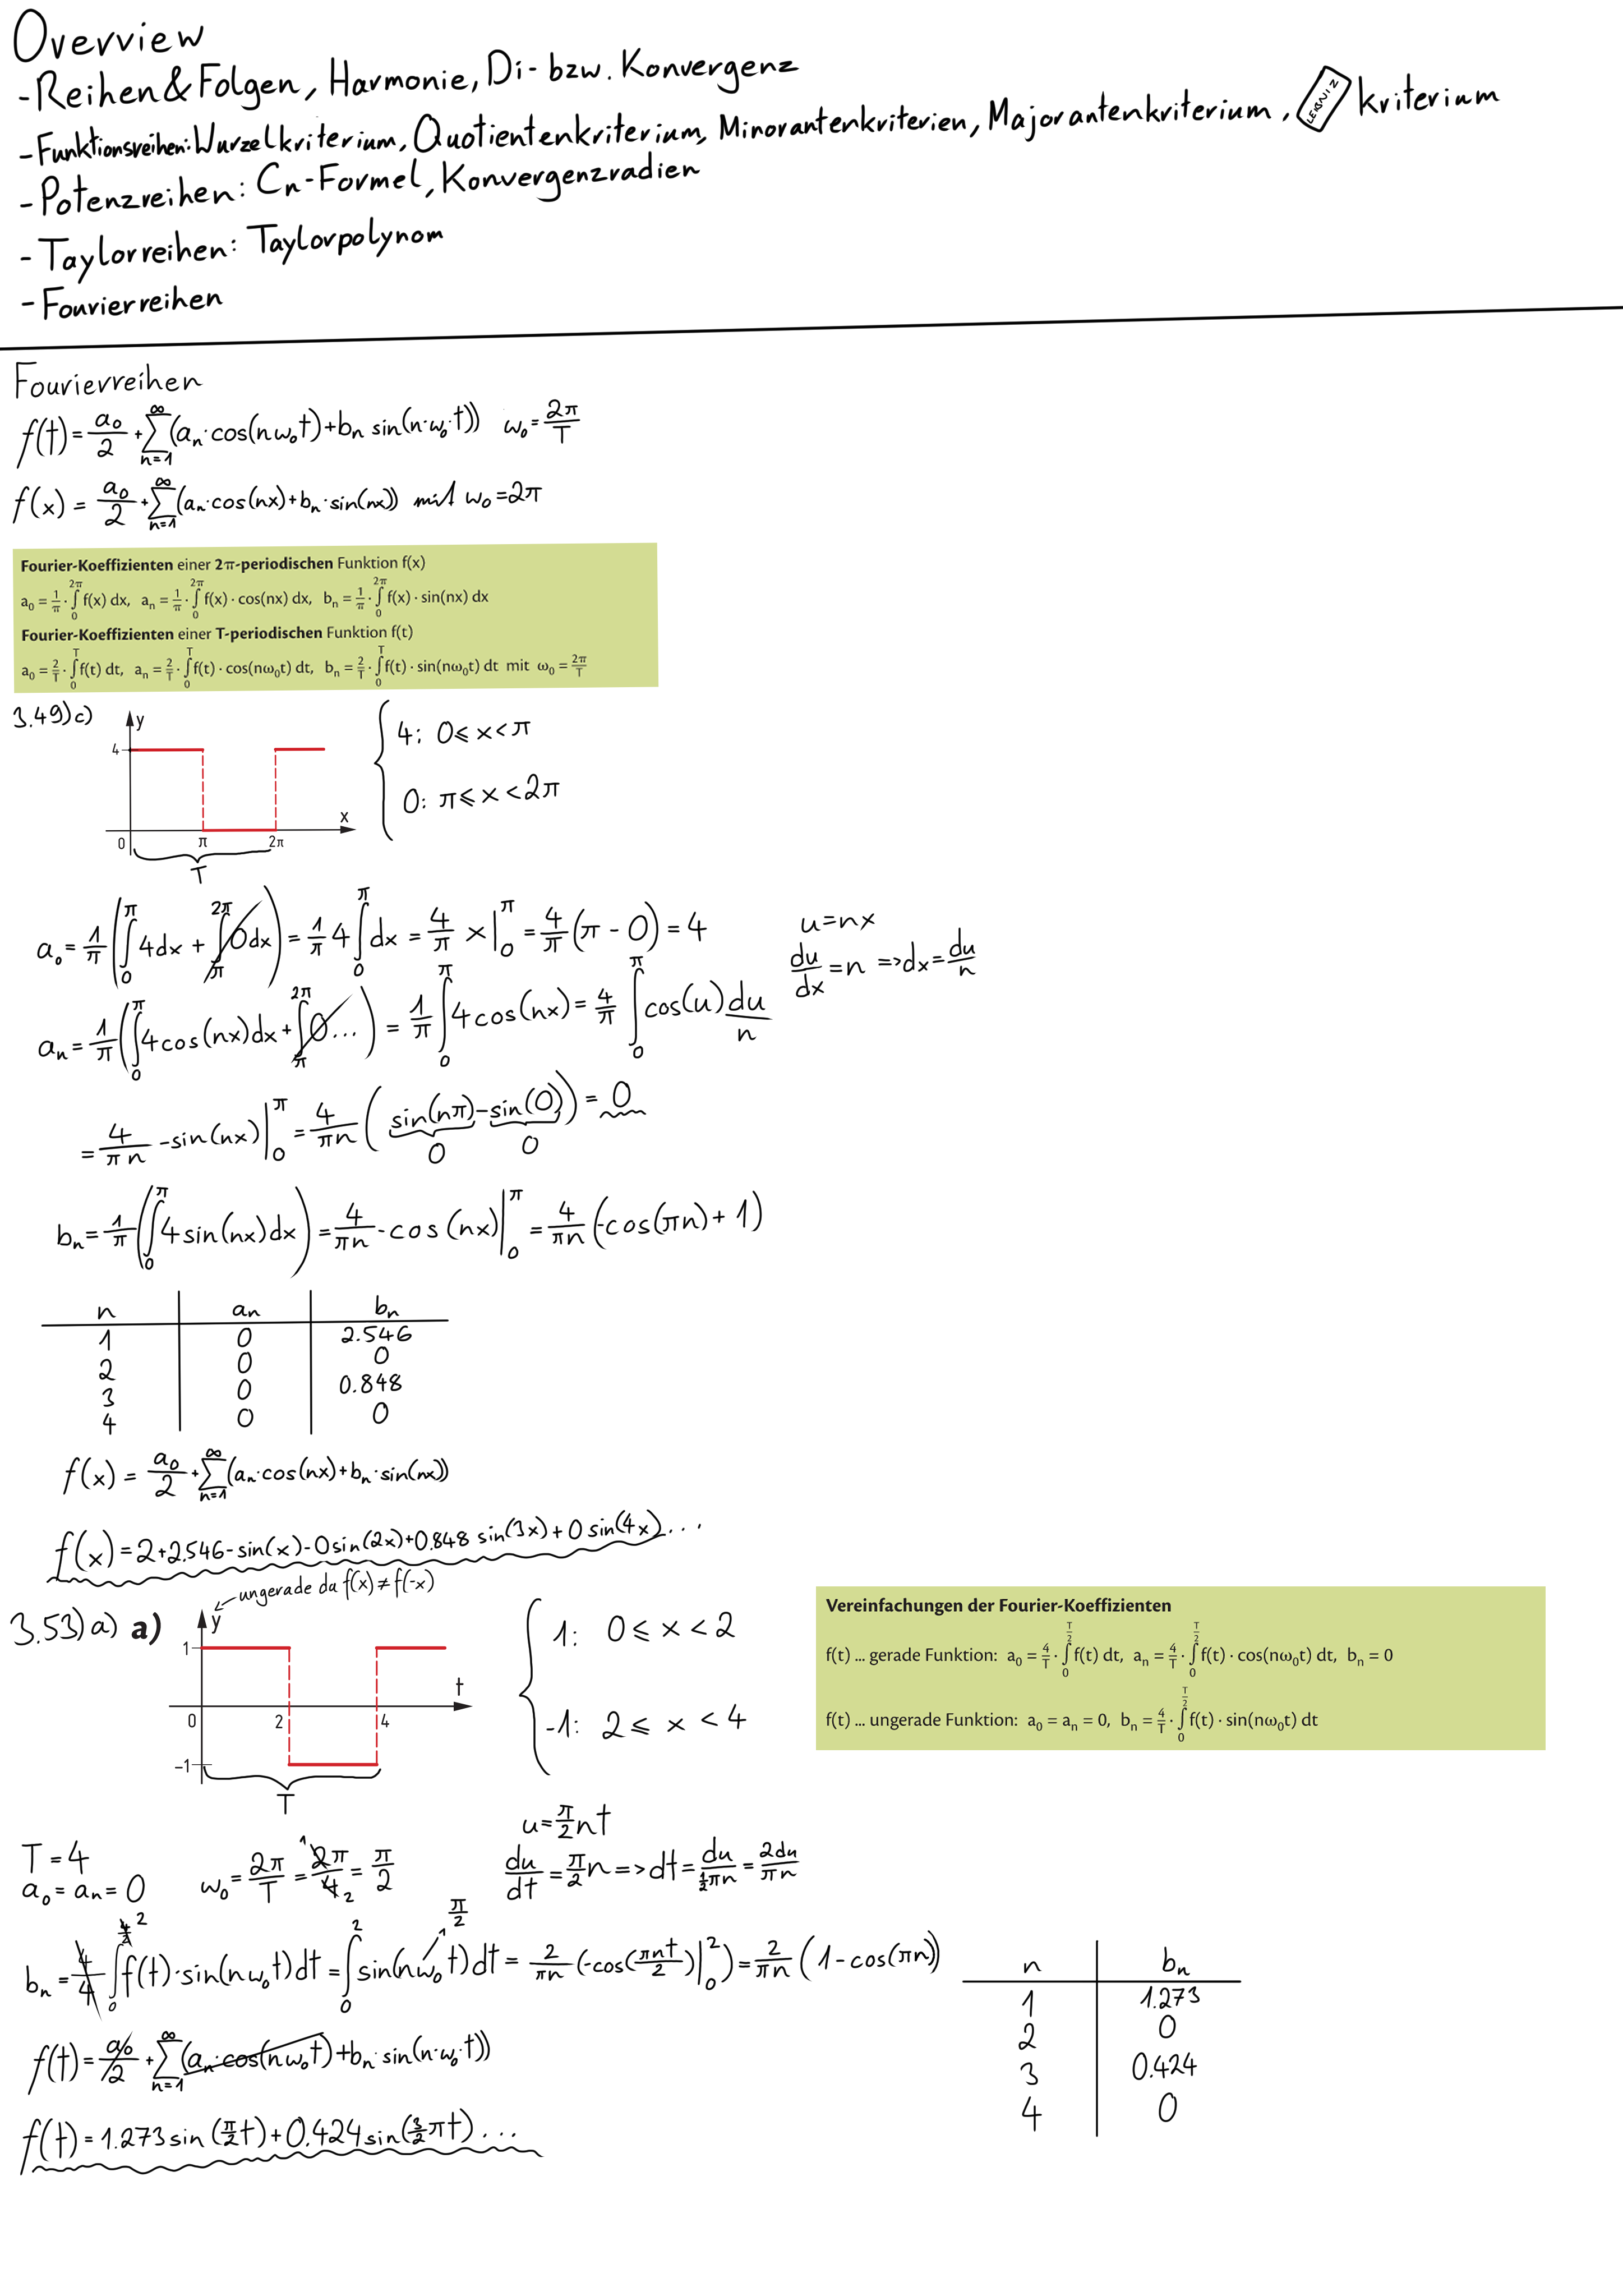 Overview
-Reihen&Folgen, Harmonie, Di- bzw. Konvergenz
-Funktionsreihen: Wurzelkriterium, Quotientenkriterium, Minorantenkriterien, Majorantenkriterium, LEIBNIZ kriterium
-Potenzreihen: Cn-Formel, Konvergenzradien
-Taylorreihen: Taylorpolynom
-Fourierreihen
Fourierreihen
f(t) = a₀/2 + ∑_{n=1}^{∞} (aₙ·cos(nω₀t)+bₙ sin(n·ω₀·t)) ω₀ = 2π/T
f(x) = a₀/2 + ∑_{n=1}^{∞} (aₙ·cos(nx)+bₙ·sin(nx)) mit ω₀=2π
Fourier-Koeffizienten einer 2π-periodischen Funktion f(x)
a₀ = 1/π · ∫_0^{2π} f(x) dx, aₙ = 1/π · ∫_0^{2π} f(x) · cos(nx) dx, bₙ = 1/π · ∫_0^{2π} f(x) · sin(nx) dx
Fourier-Koeffizienten einer T-periodischen Funktion f(t)
a₀ = 2/T · ∫_0^T f(t) dt, aₙ = 2/T · ∫_0^T f(t) · cos(nω₀t) dt, bₙ = 2/T · ∫_0^T f(t) · sin(nω₀t) dt mit ω₀ = 2π/T
3.49)c)
y
4
x
0 π 2π
T
4: 0⩽x<π
0: π⩽x<2π
a₀ = 1/π (∫_0^π 4dx + ∫_π^{2π} 0dx) = 1/π 4 ∫_0^π dx = 4/π x|_0^π = 4/π (π - 0) = 4
u=nx
du/dx = n => dx = du/n
aₙ = 1/π (∫_0^π 4cos(nx)dx + ∫_π^{2π} 0...) = 1/π ∫_0^π 4cos(nx) = 4/π ∫_0^π cos(u) du/n
= 4/πn -sin(nx)|_0^π = 4/πn (sin(nπ)-sin(0)) = 0
0 0
bₙ = 1/π (∫_0^π 4sin(nx)dx) = 4/πn -cos(nx)|_0^π = 4/πn (-cos(πn)+1)
n aₙ bₙ
1 0 2.546
2 0 0
3 0 0.848
4 0 0
f(x) = a₀/2 + ∑_{n=1}^{∞} (aₙ·cos(nx)+bₙ·sin(nx))
f(x) = 2+2.546-sin(x)-0sin(2x)+0.848 sin(3x)+0 sin(4x)...
ungerade da f(x)≠f(-x)
3.53)a) a)
y
1
t
0 2 4
-1
T
1: 0⩽x<2
-1: 2⩽x<4
Vereinfachungen der Fourier-Koeffizienten
f(t) ... gerade Funktion: a₀ = 4/T · ∫_0^{T/2} f(t) dt, aₙ = 4/T · ∫_0^{T/2} f(t) · cos(nω₀t) dt, bₙ = 0
f(t) ... ungerade Funktion: a₀ = aₙ = 0, bₙ = 4/T · ∫_0^{T/2} f(t) · sin(nω₀t) dt
T=4
a₀=aₙ=0
ω₀ = 2π/T = 2π/4 = π/2
1 2
u = π/2 nt
du/dt = π/2 n => dt = du/(1/2 πn) = 2du/πn
bₙ = 4/4 ∫_0^{4/2 2} f(t)·sin(nω₀t)dt = ∫_0^2 sin(nω₀t)dt = 2/πn (-cos(πnt/2)|_0^2) = 2/πn (1-cos(πn))
π/2
n bₙ
1 1.273
2 0
3 0.424
4 0
f(t) = a₀/2 + ∑_{n=1}^{∞} (aₙ·cos(nω₀t)+bₙ·sin(n·ω₀·t))
f(t) = 1.273sin(π/2 t)+0.424sin(3/2 πt)...